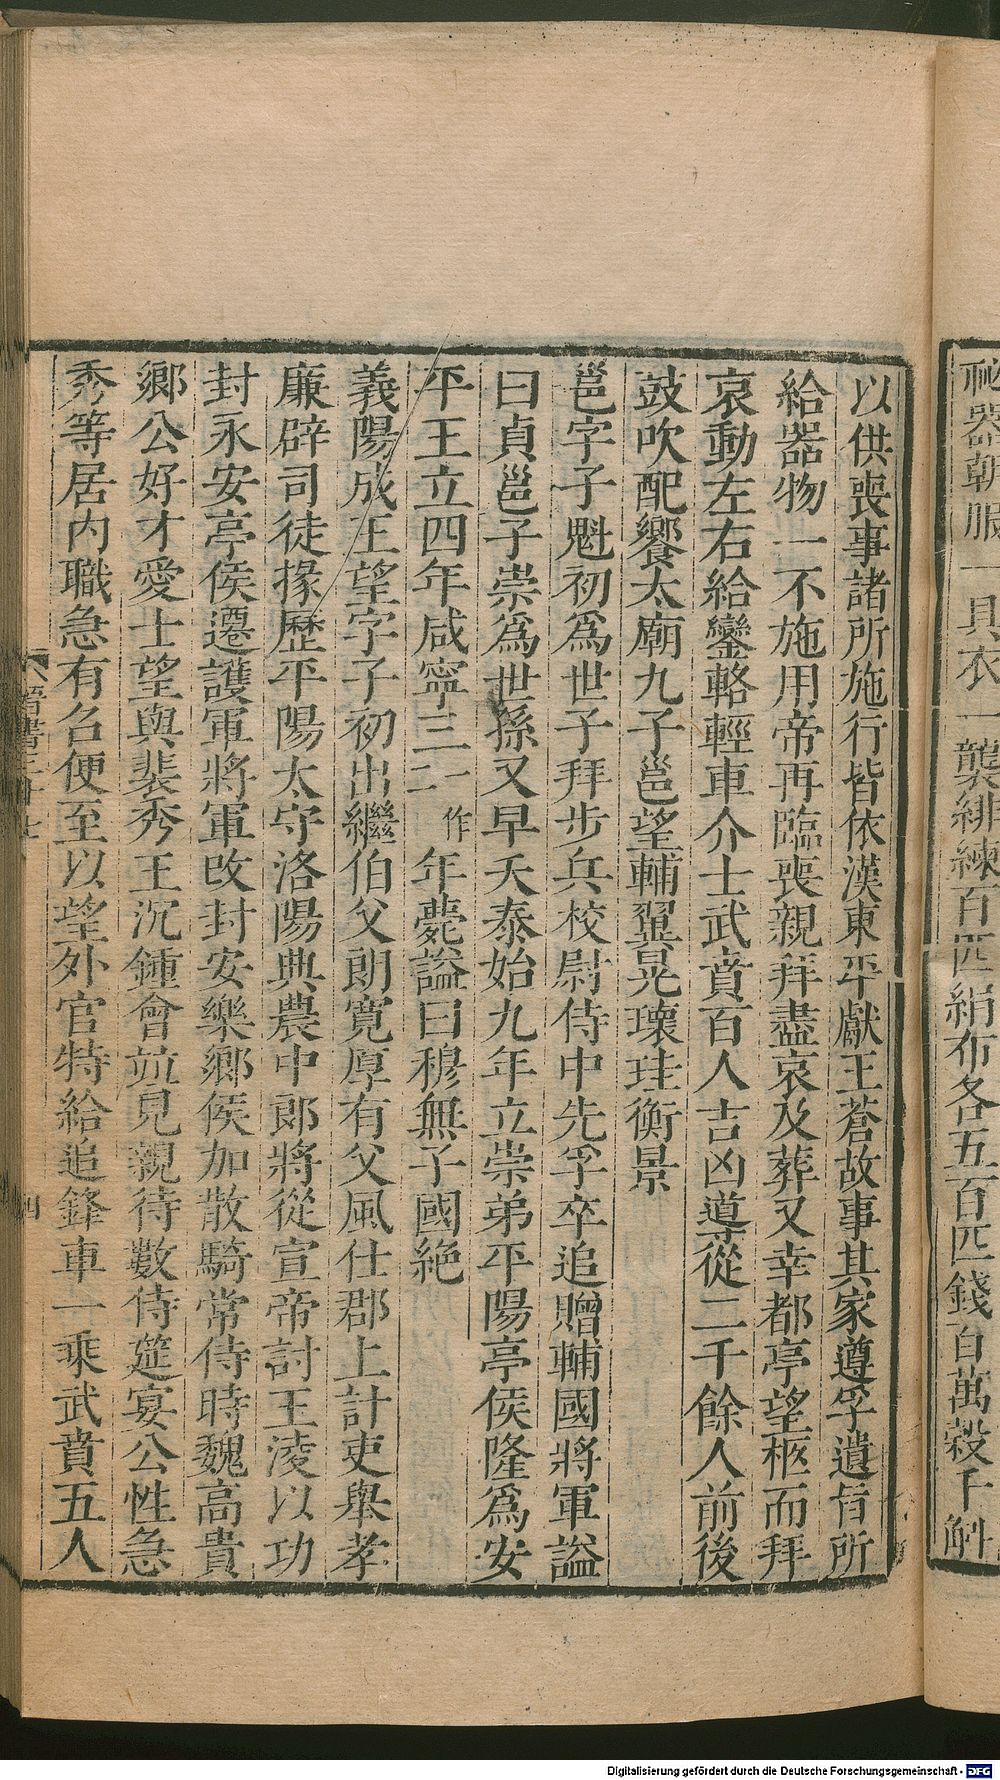 祕器朝服一具衣一襲緋練百匹絹布各五百匹錢百萬穀千斛
以供喪事諸所施行皆依漢東平獻王蒼故事其家遵孚遺旨所
給器物一不施用帝再臨喪親拜盡哀及葬又幸都亭望柩而拜
哀動左右給鑾輅輕車介士武賁百人吉凶導從二千餘人前後
鼓吹配饗太廟九子邕望輔翼晃瓌珪衡景
邕字子魁初為世子拜步兵校尉侍中先孚卒追贈輔國將軍謚
曰貞邕子崇為世孫又早夭泰始九年立崇弟平陽亭侯隆為安
平王立四年咸寧三一作二年薨謚曰穆無子國絶
義陽成王望字子初出繼伯父朗寬厚有父風仕郡上計吏舉孝
廉辟司徒掾歷平陽太守洛陽典農中郎將從宣帝討王淩以功
封永安亭侯遷護軍將軍改封安樂鄉侯加散騎常侍時魏高貴
鄉公好才愛士望與裴秀王沉鍾會竝見親待數侍筵宴公性急
秀等居內職急有召便至以望外官特給追鋒車一乘武賁五人
晉書三十七
四
Digitalisierung gefördert durch die Deutsche Forschungsgemeinschaft - DFG